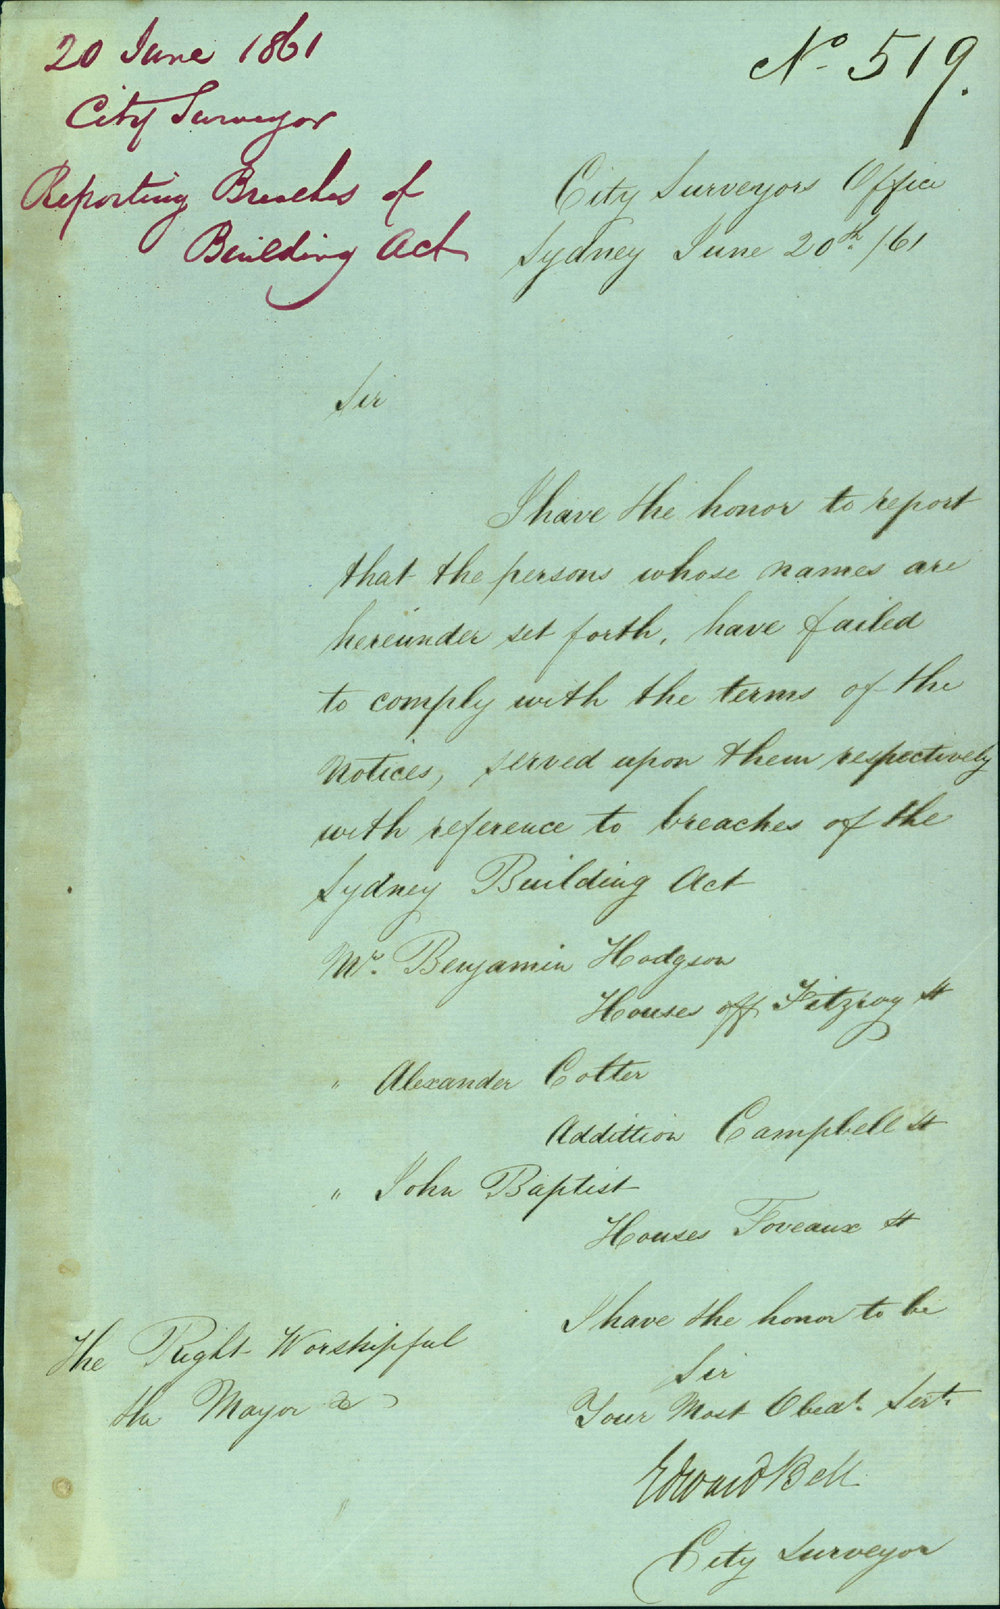 20 June 1861
City Surveyor
Reporting Breaches of
Building Act
No. 519.
City Surveyors Office
Sydney June 20th /61
Sir
I have the honor to report
that the persons whose names are
hereunder set forth, have failed
to comply with the terms of the
Notices, served upon them respectively
with reference to breaches of the
Sydney Building Act
Mr. Benjamin Hodgson
Houses off Fitzroy St
" Alexander Cotter
Addittion Campbell St
" John Baptist
Houses Foveaux St
I have the honor to be
Sir
Your Most Obedt. Servt.
Edward Bell
City Surveyor
The Right Worshipful
the Mayor &c